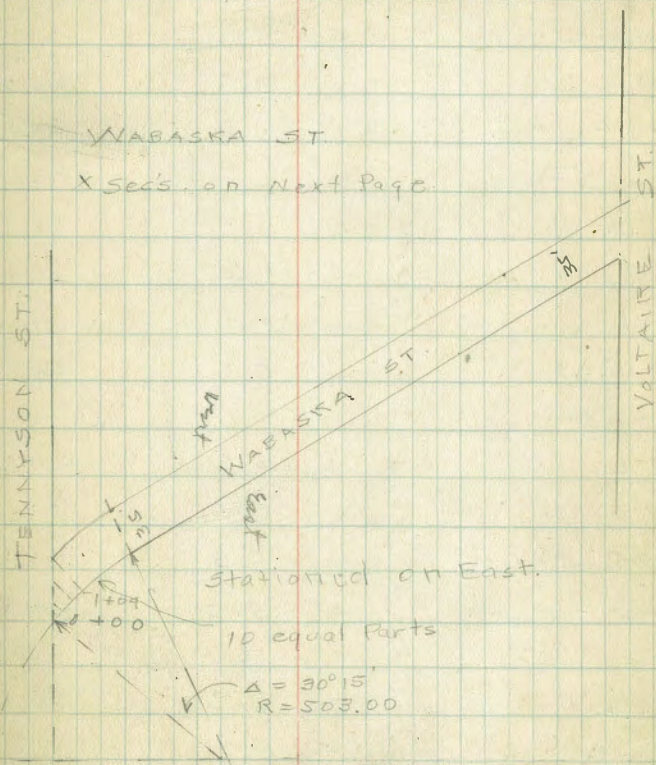 WABASKA ST.
X Sec's. on Next Page.
TENNYSON ST.
VOLTAIRE ST.
West
WABASKA ST.
East
Stationed on East.
0+00
10 equal Parts
Δ = 30°15'
R = 503.00